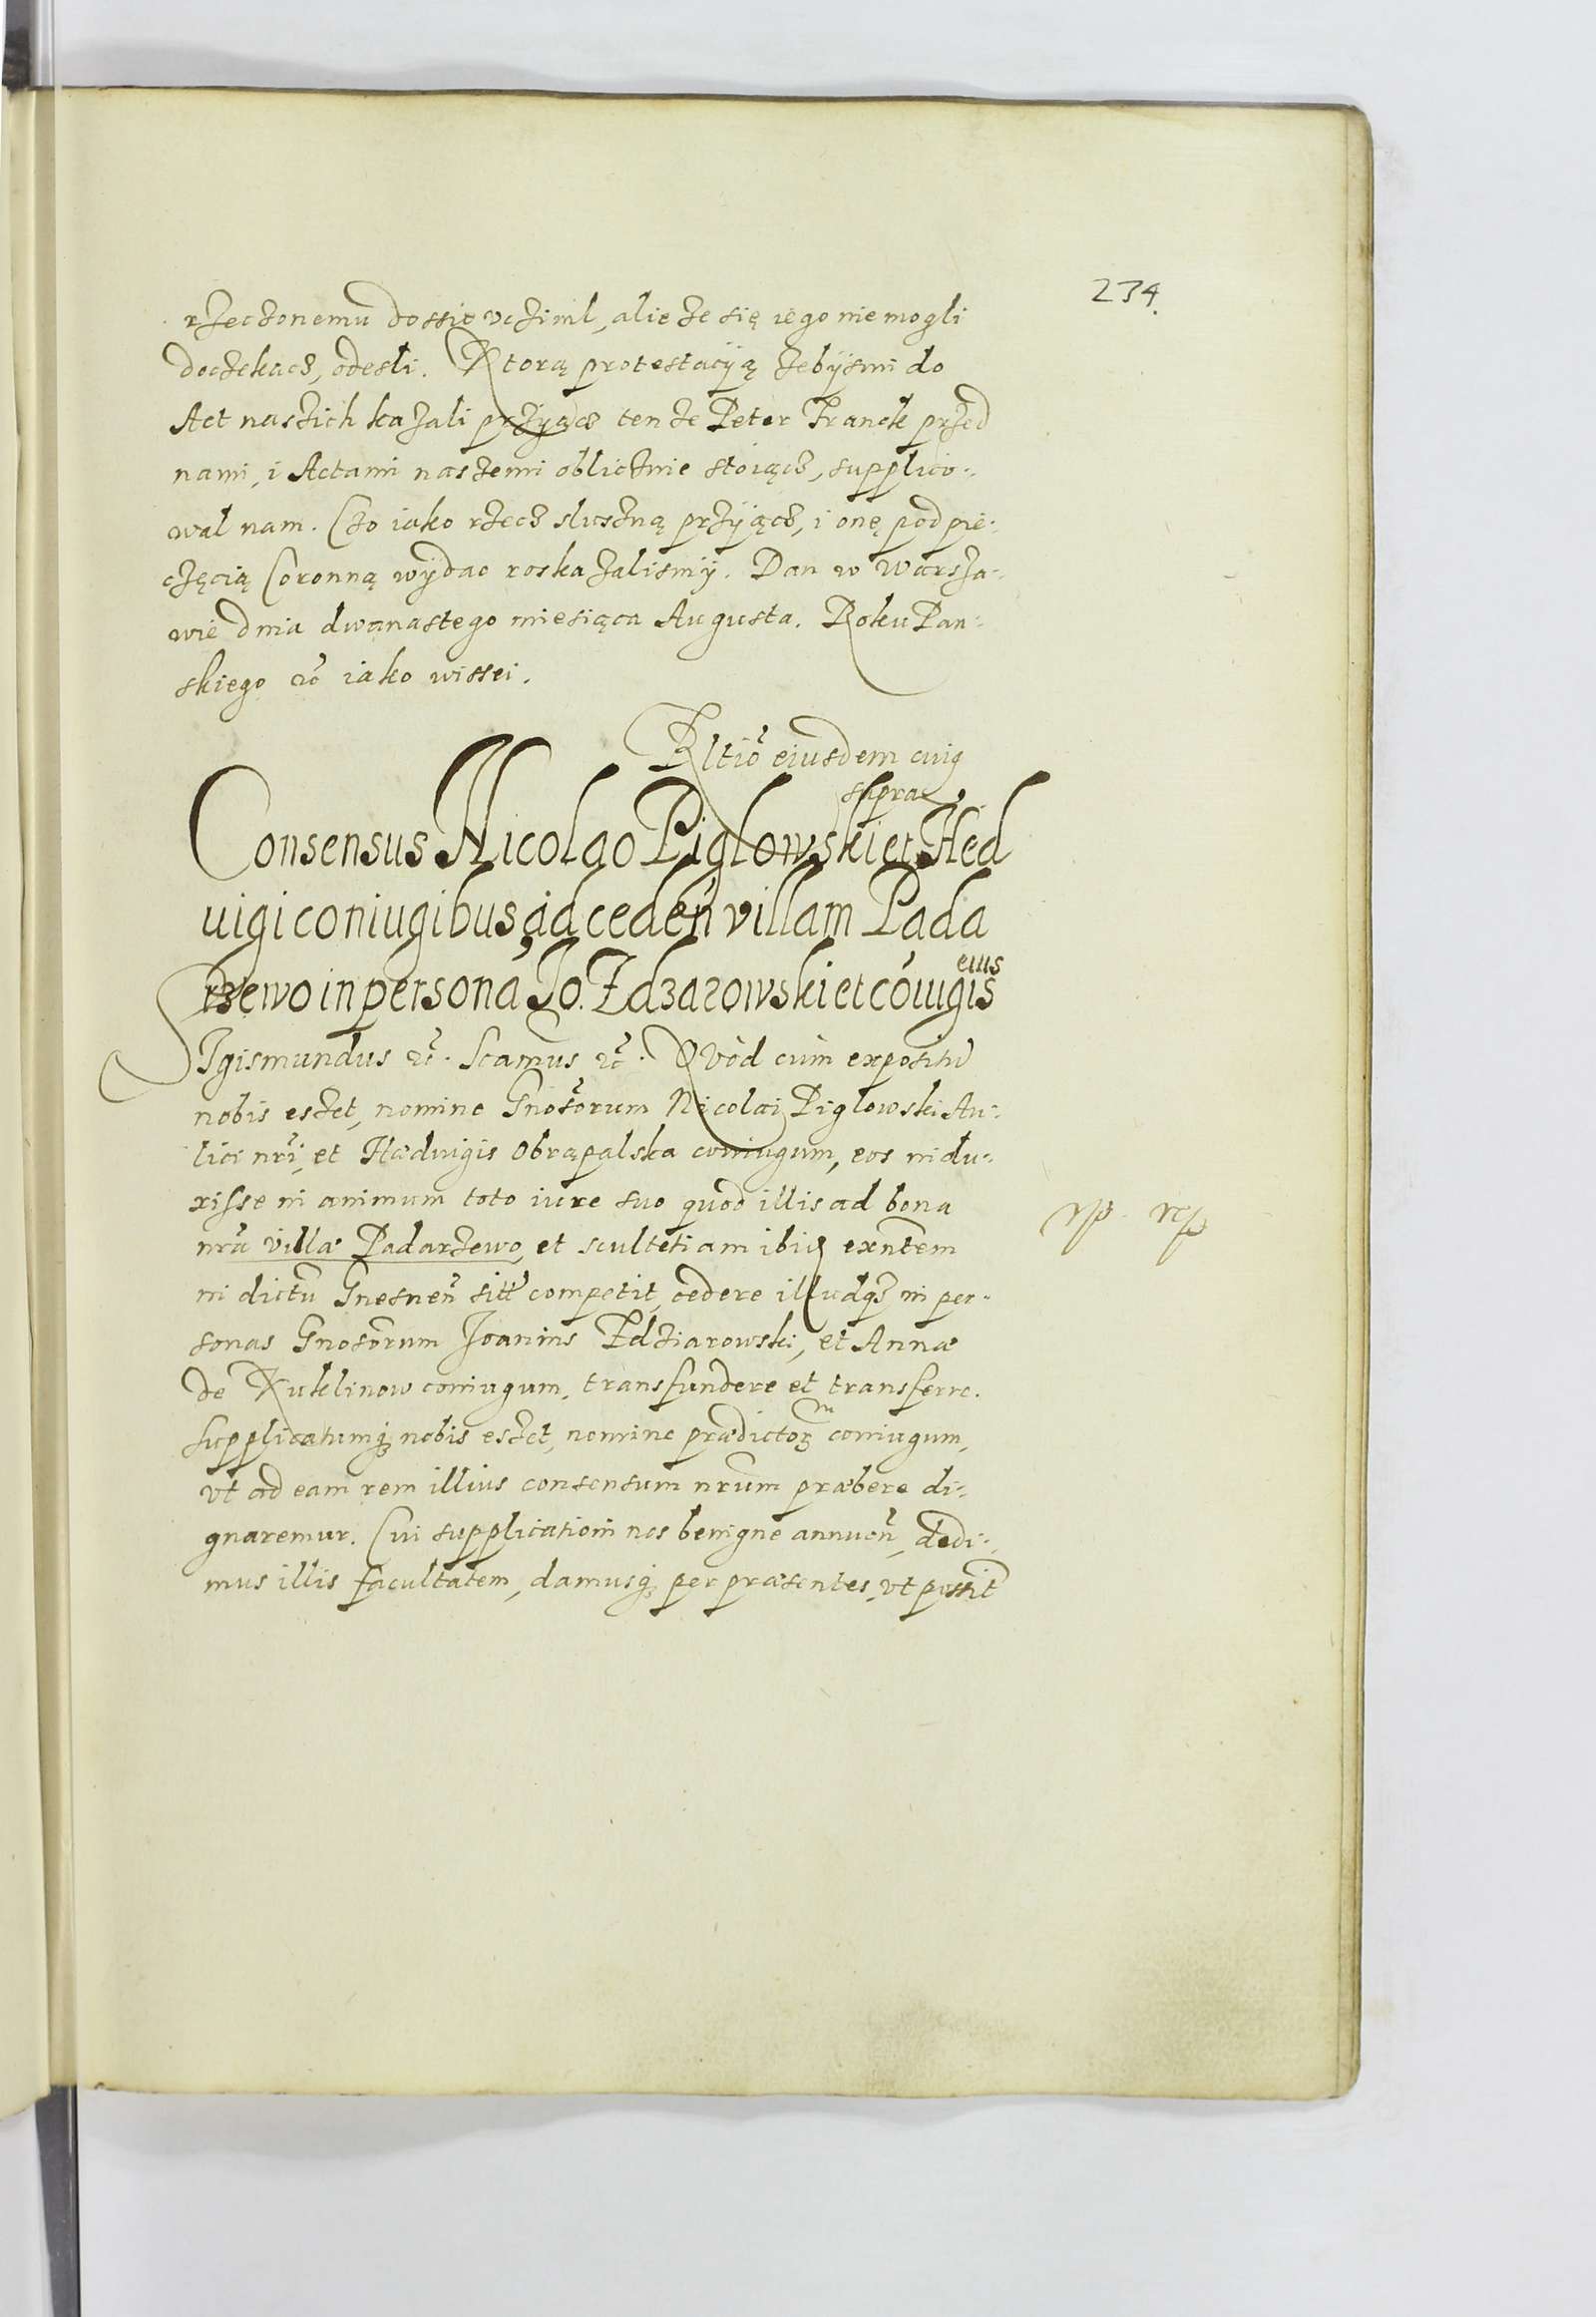 234.
rzeczonemu dossic vcżinil, alie że się iego nie mogli
doczekacz, odesli. Ktorą protestacyią żebyismi do
Act naszich kazali przyiącz ten że Peter Franck przed
nami, i Actami naszemi oblicznie stoiącz, supplico-
wal nam. Czo iako rzecz sluszną przyiącz, i onę pod pie-
częcią Coronną wydac roskazalismy. Dan w Warsza-
wie dnia dwanastego miesiąca Augusta. Roku Pan-
skiego etc iako wissei.
Rltio eiusdem cuius
supra.
Consensus Nicolao Piglowski et Hed
uigi coniugibus, ad ceden villam Pada
rzewo in persona Jo. Zdzarowski et coiugis
eius
SIgismundus etc. Scamus etc. Quòd cum expositu
nobis eszet, nomine Gnosorum Nicolai Piglowski Au-
lici nri, et Hædvigis Obrąpalska coniugum, eos indu-
xisse in animum toto iure suo quod illis ad bona
nra villæ Padarzewo, et scultetiam ibid exntem
in dictu Gnesnen sitt competit, cedere illudq in per-
sonas Gnosorum Joannis Zdziarowski, et Annæ
de Kuklinow coniugum, transfundere et transferre.
Supplicatumq nobis eszet, nomine prædictor coniugum,
vt ad eam rem illius consensum nrum præbere di-
gnaremur. Cui supplicationi nos benigne annuen, dedi-
mus illis facultatem, damusq per præsentes, vt possit